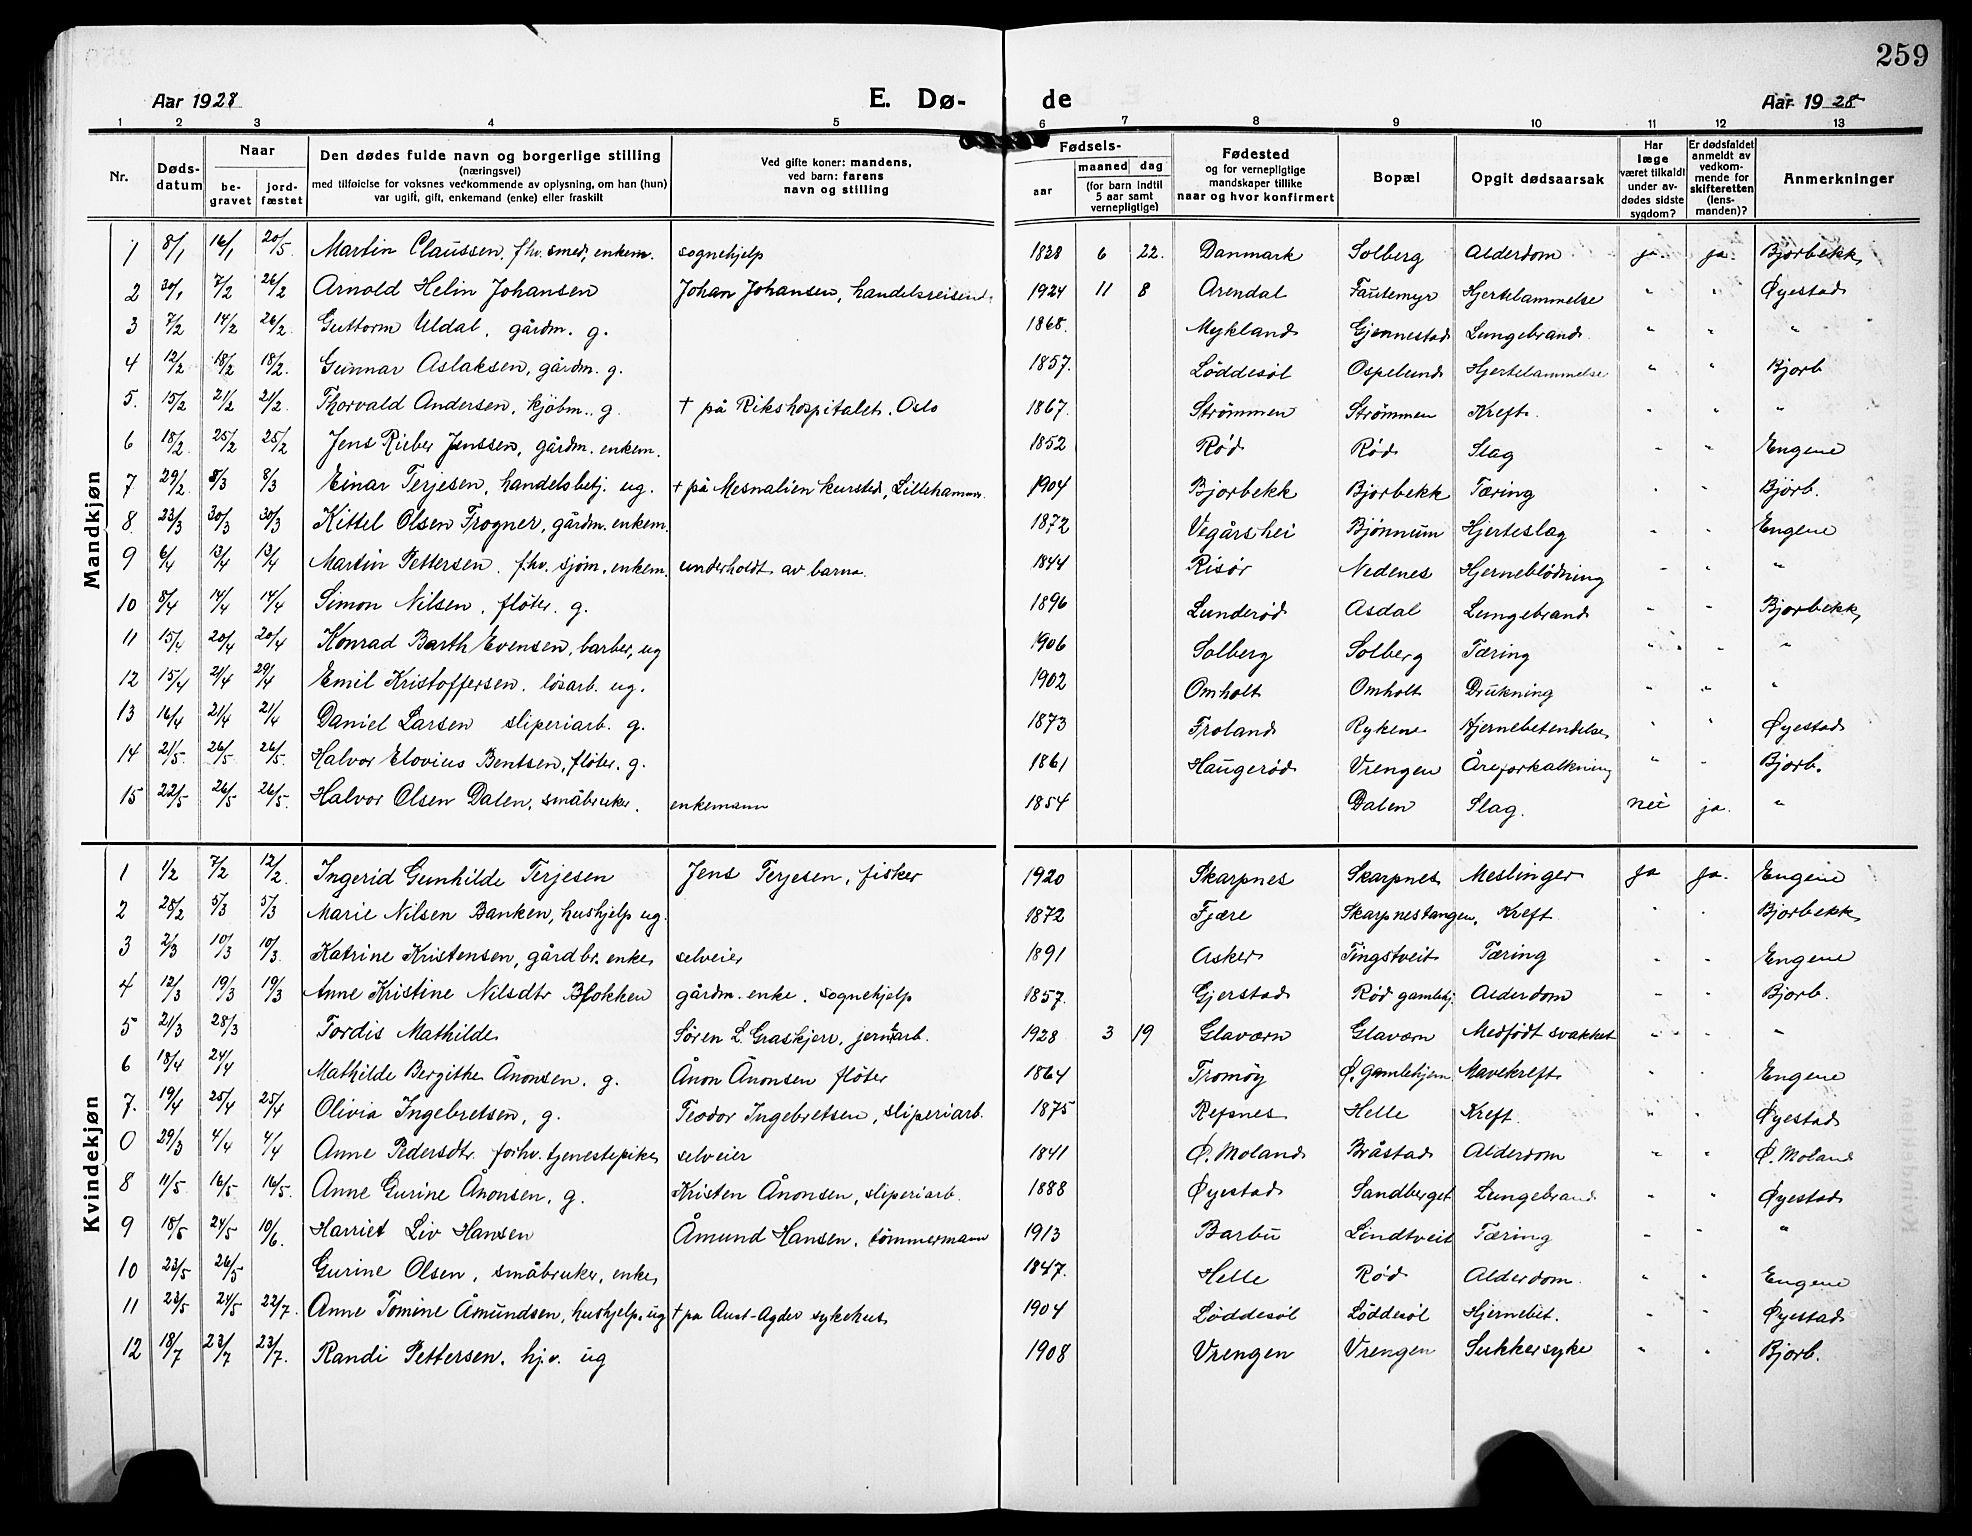 259
Aar 1928 E. Dø- de Aar 1928
1 2 3 4 5 6 7 8 9 10 11 12 13
Nr. Døds-datum Naar be-gravet jord-fæstet Den dødes fulde navn og borgerlige stilling (næringsvei) med tilføielse for voksnes vedkommende av oplysning, om han (hun) var ugift, gift, enkemand (enke) eller fraskilt Ved gifte koner: mandens, ved barn: farens navn og stilling Fødsels- aar maaned dag (for barn indtil 5 aar samt vernepligtige) Fødested og for vernepligtige mandskaper tillike naar og hvor konfirmert Bopæl Opgit dødsaarsak Har læge været tilkaldt under av-dødes sidste sygdom? Er dødsfaldet anmeldt av vedkom-mende for skifteretten (lens-manden)? Anmerkninger
Mandkjøn
1 8/1 16/1 20/5 Martin Claussen, fhv. smed, enkem. sognehjelp 1828 6 22. Danmark Solberg Alderdom ja ja Bjorbekk
2 30/1 7/2 26/2 Arnold Helin Johansen Johan Johansen, handelsreisende 1924 11 8 Arendal Fautemyr Hjertelammelse " " Øyestad
3 7/2 14/2 26/2 Guttorm Uldal, gårdm. g. 1868. Mykland Gjennestad Lungebrand " " "
4 12/2 18/2 18/2. Gunnar Aslaksen, gårdm. g. 1857. Løddesøl Ospelund Hjertelammelse " " Bjorb
5. 15/2 21/2 21/2. Thorvald Andersen, kjøbm. g. † på Rikshospitalet, Oslo 1867. Strømmen Strømmen Kreft " " "
6 18/2 25/2 25/2 Jens Rieber Jenssen, gårdm. enkem. 1852 Rød Rød Slag " " Engene
7 29/2 8/3 8/3 Einar Terjesen, handelsbetj. ug. † på Mesnalien kursted, Lillehammer 1904 Bjorbekk Bjorbekk Tæring " " Bjorb.
8. 23/3 30/3 30/3 Kittel Olsen Frogner, gårdm. enkem. 1872 Vegårshei Bjønnum Hjerteslag " " Engene
9 6/4 13/4 13/4 Martin Pettersen, fhv. sjøm. enkem. underholdt av barna. 1844 Risør Nedenes Hjerneblødning " " "
10 8/4 14/4 14/4 Simon Nilsen, fløter. g. 1896 Lunderød Asdal Lungebrand " " Bjorbekk
11 15/4 20/4 20/4 Konrad Barth Evensen, barber, ug 1906 Solberg Solberg Tæring " " "
12 15/4 21/4 29/4 Emil Kristoffersen, løsarb. ug. 1902 Omholt Omholt Drukning " " "
13 16/4 21/4 21/4 Daniel Larsen sliperiarb. g. 1873 Froland Rykene Hjernebetendelse " " Øyestad
14 21/5 26/5 26/5. Halvor Elovius Bentsen, fløter. g. 1861 Haugerød Vrengen Åreforkalkning " " Bjorb.
15 22/5 26/5 26/5. Halvor Olsen Dalen, småbruker. enkemann 1854 Dalen Slag. nei ja. "
Kvindekjøn
1 1/2 7/2 12/2. Ingerid Gunhilde Terjesen Jens Terjesen, fisker 1920 Skarpnes Skarpnes Meslinger ja ja. Engene
2 28/2 5/3 5/3 Marie Nilsen Banken, hushjelp ug. 1872 Fjære Skarpnestangen, Kreft " " Bjorbekk
3 2/3 10/3 10/3. Katrine Kristensen, gårdbr. enke selveier 1891 Asker Tingstveit Tæring " " Engene
4 12/3 19/3 19/3 Anne Kristine Nilsdtr Blokken gårdm. enke. sognehjelp 1857. Gjerstad Rød gamlehj. Alderdom " " Bjorb.
5 21/3 28/3 Tordis Mathilde Søren L. Graskjerr, jernarb. 1928 3 19 Glaværn Glaværn Medfødt svakhet " " "
6 18/4 24/4 Mathilde Bergitte Ånonsen. g. Ånon Ånonsen fløter 1864 Tromøy Ø. gamlehjem Mavekreft " " Engene
7. 19/4 25/4 25/4 Olivia Ingebretsen, g. Teodor Ingebretsen, sliperiarb. 1875 Refsnes Helle Kreft " " Øyestad
0 29/3 4/4 4/4 Anne Pedersdtr. forhv. tjenestepike selveier 1841 Ø. Moland Bråstad Alderdom " " Ø. Moland
8 11/5 16/5 16/5. Anne Gurine Ånonsen, g. Kristen Ånonsen, sliperiarb. 1888 Øyestad Sandberget Lungebrand " " Øyestad
9 18/5 24/5 10/6. Harriet Liv Hansen Åmund Hansen, tømmermann 1913 Barbu Lindtveit Tæring " " "
10 23/5 26/5 Gurine Olsen, småbruker, enke 1847. Helle Rød Alderdom " " Engene
11 23/5 24/5 22/7. Anne Tomine Åmundsen, hushjelp, ug † på Aust-Agder sykehus 1904 Løddesøl Løddesøl Hjernebet. " " Øyestad
12 18/7 23/7 23/7. Randi Pettersen, hj.v. ug 1908 Vrengen Vrengen Sukkersyke " " Bjorb.